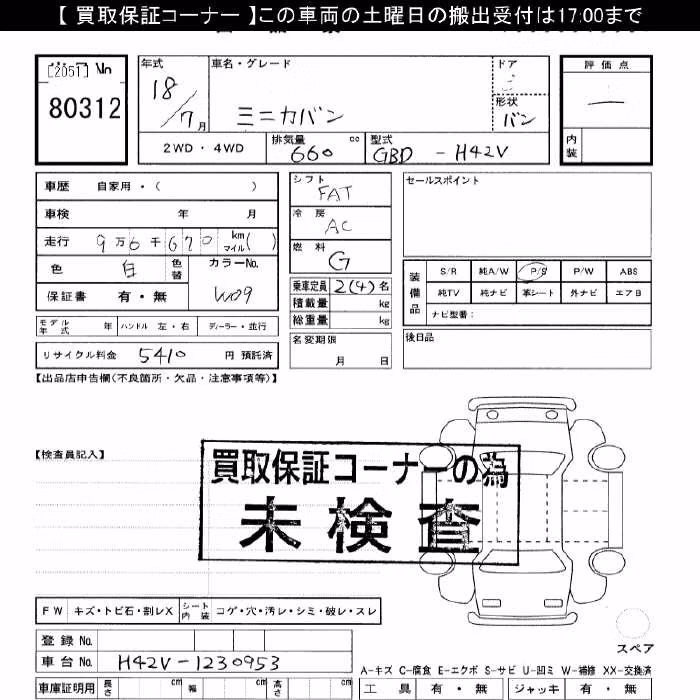 【 買取保証コーナー 】この車両の土曜日の搬出受付は17:00まで
[2051] No
80312
年式
18/7月
車名・グレード
ミニカバン
ドア
形状
バン
評価点
内装
2WD・4WD
排気量 660 cc
型式 GBD - H42V
車歴 自家用・( )
車検 年 月
走行 9万6千670 km マイル( )
色 白 色替 カラーNo. W09
保証書 有・無
モデル年式 年 ハンドル 左・右 ディーラー・並行
リサイクル料金 5410 円 預託済
シフト FAT
冷房 AC
燃料 G
乗車定員 2(4)名
積載量 kg
総重量 kg
名変期限 月 日
セールスポイント
装備品
S/R 純A/W P/S P/W ABS
純TV 純ナビ 革シート 外ナビ エアB
ナビ型番:
後日品
【出品店申告欄(不良箇所・欠品・注意事項等)】
【検査員記入】
買取保証コーナーの為
未検査
FW キズ・トビ石・割レX シート内装 コゲ・穴・汚レ・シミ・破レ・スレ
登録 No.
車台 No. H42V-1230953
車庫証明用 長さ cm 幅 cm 高さ cm
スペア
A-キズ C-腐食 E-エクボ S-サビ U-凹ミ W-補修 XX-交換済
工具 有・無 ジャッキ 有・無